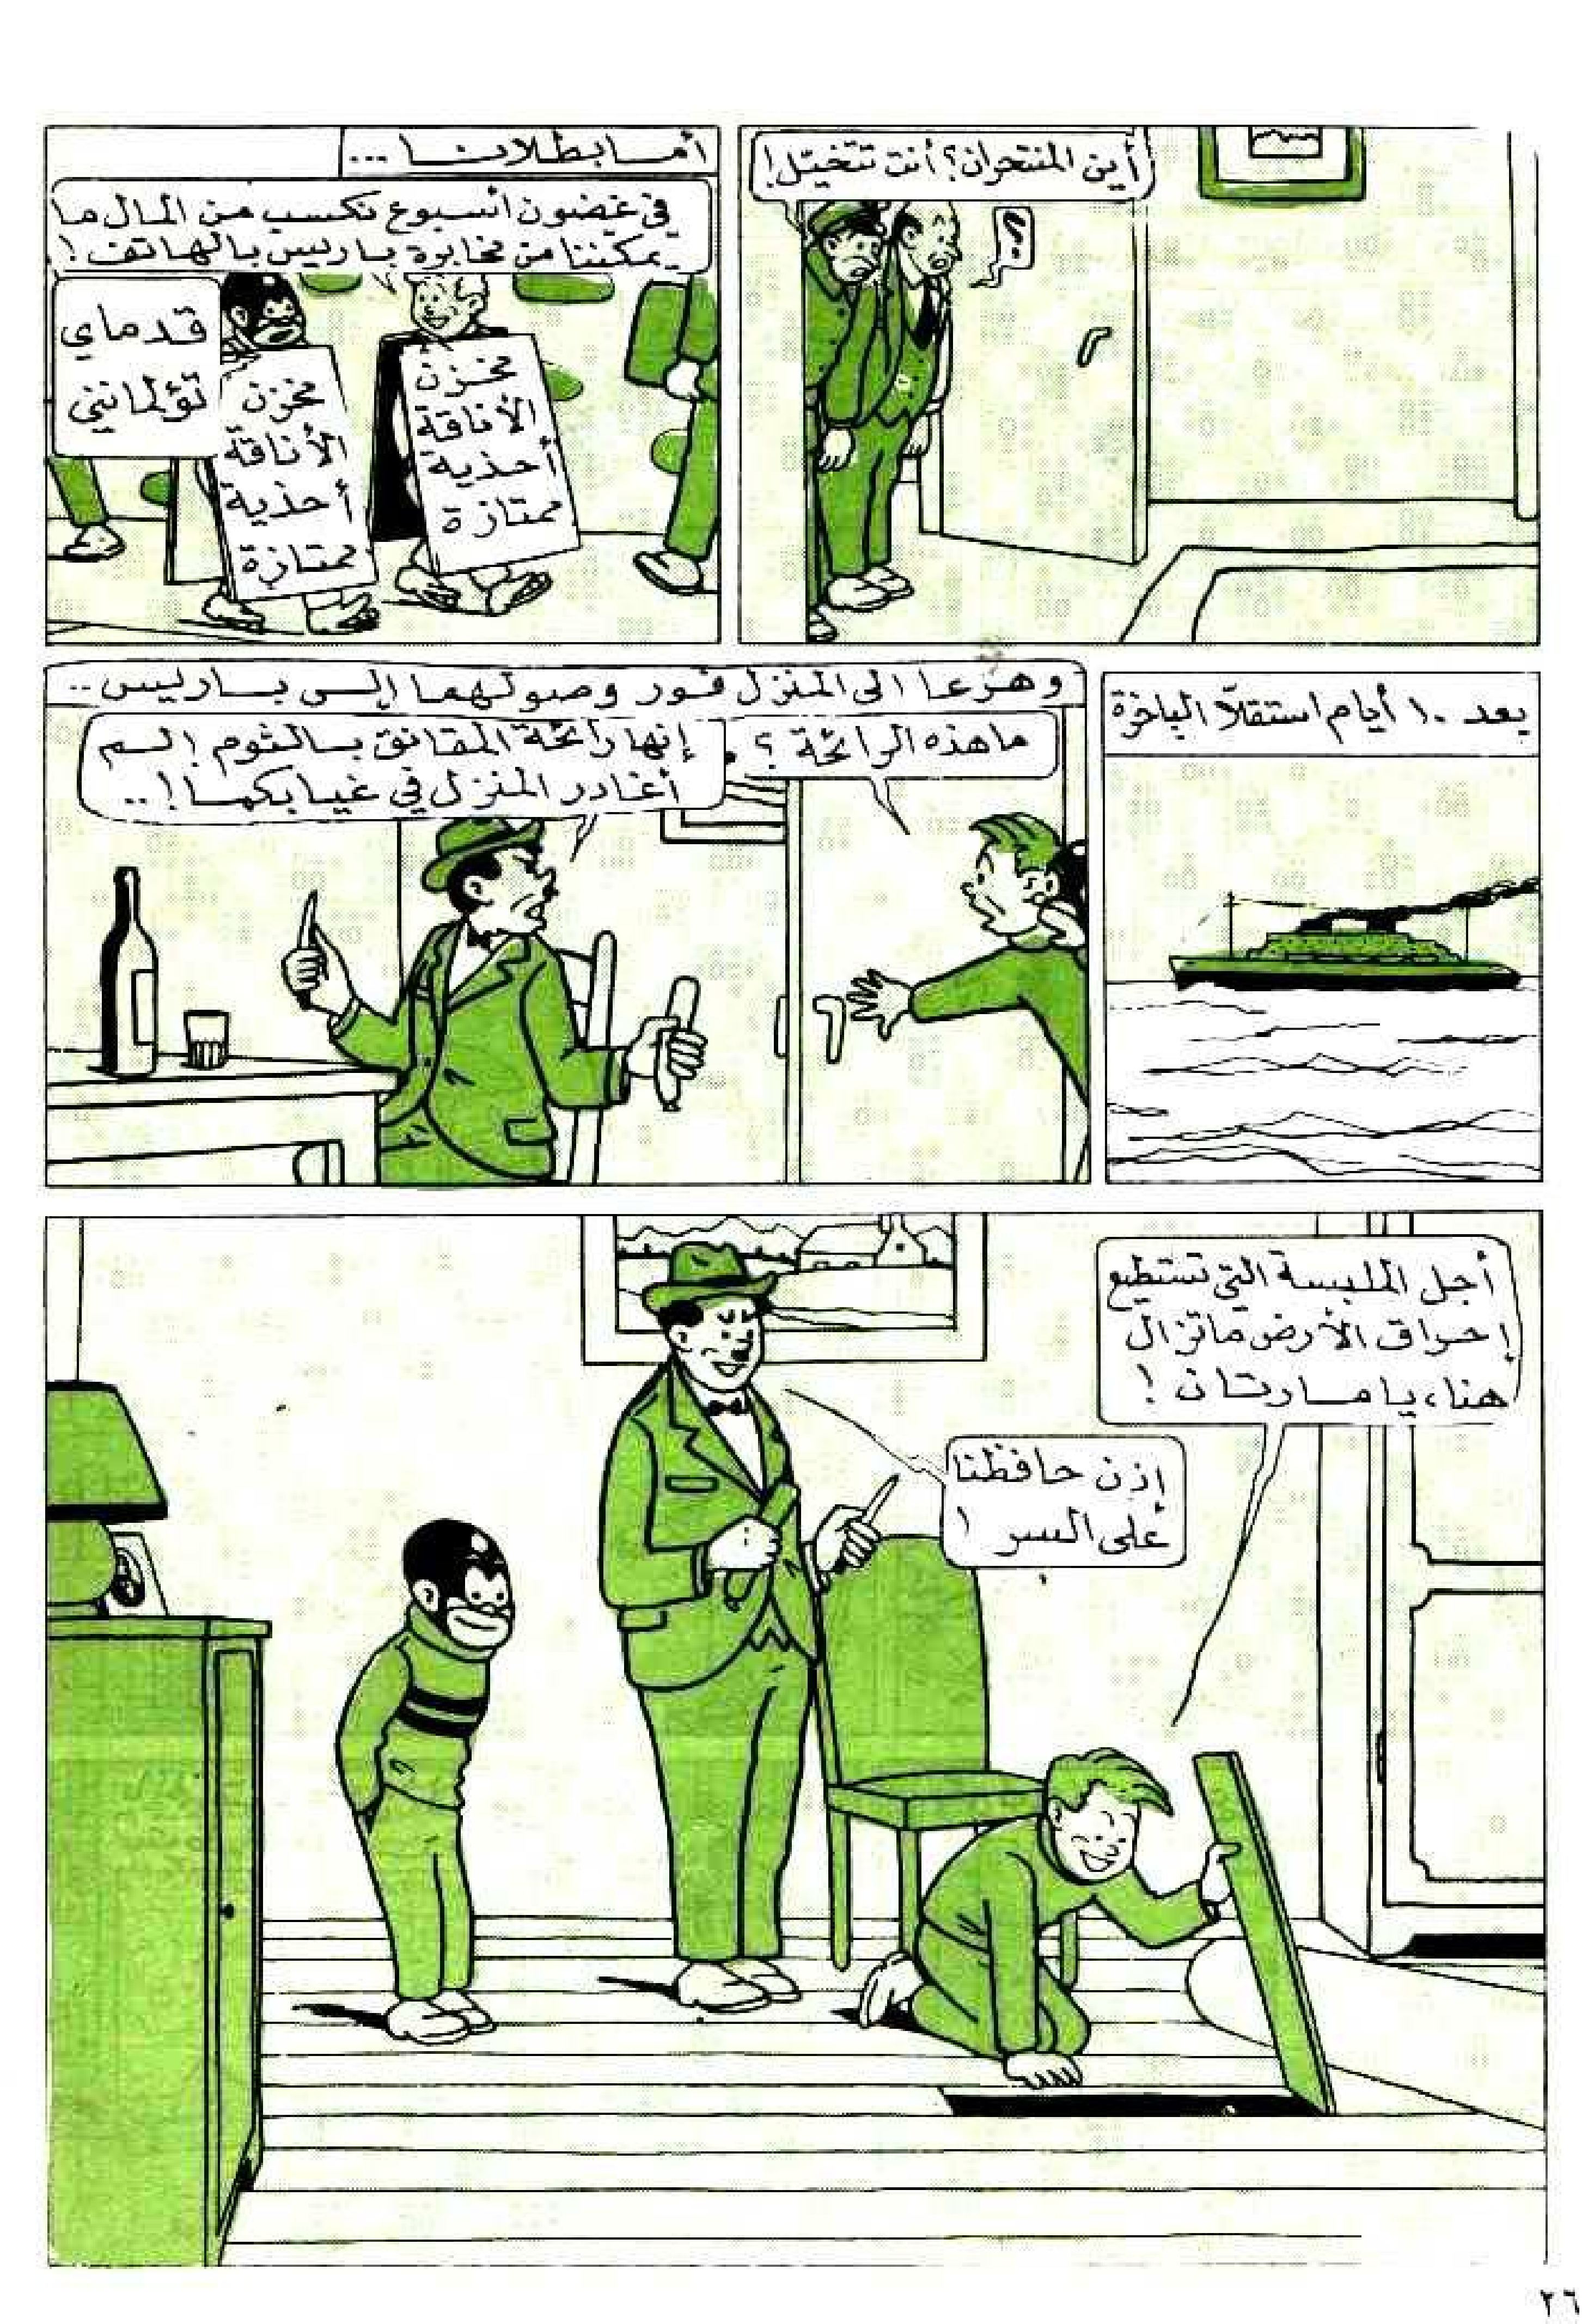 أين المنتحران؟ أنت تتخيّل!
؟!
أما بطلانا ...
في غضون أسبوع نكسب من المال ما
يمكننا من مخابرة باريس بالهاتف !
قدماي
تؤلمانني
مخزن
الأناقة
أحذية
ممتازة
مخزن
الأناقة
أحذية
ممتازة
بعد ١٠ أيام استقلاّ الباخرة
وهرعا الى المنزل فور وصولهما إلى باريس ..
ما هذه الرائحة ؟
إنها رائحة المقانق بالثوم ! لم
أغادر المنزل في غيابكما ! ..
أجل الملبسة التي تستطيع
إحراق الأرض ما تزال
هنا، يا مارتان !
إذن حافظنا
على السر !
٢٦